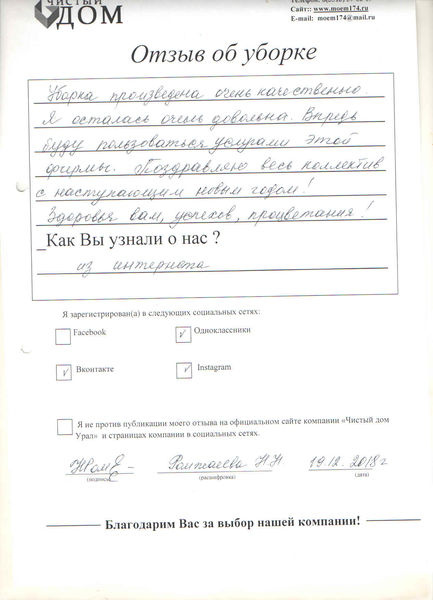 чистый
ДОМ
Сайт:: www.moem174.ru
E-mail: moem174@mail.ru
Отзыв об уборке
Уборка произведена очень качественно.
Я осталась очень довольна. Впредь
буду пользоваться услугами этой
фирмы. Поздравляю весь коллектив
с наступающим новым годом!
Здоровья вам, успехов, процветания!
_Как Вы узнали о нас ?
из интернета
Я зарегистрирован(а) в следующих социальных сетях:
Facebook
Одноклассники
Вконтакте
Instagram
Я не против публикации моего отзыва на официальном сайте компании «Чистый дом
Урал» и страницах компании в социальных сетях.
Н.Н 19.12.2018г
(подпись) (расшифровка) (дата)
Благодарим Вас за выбор нашей компании!